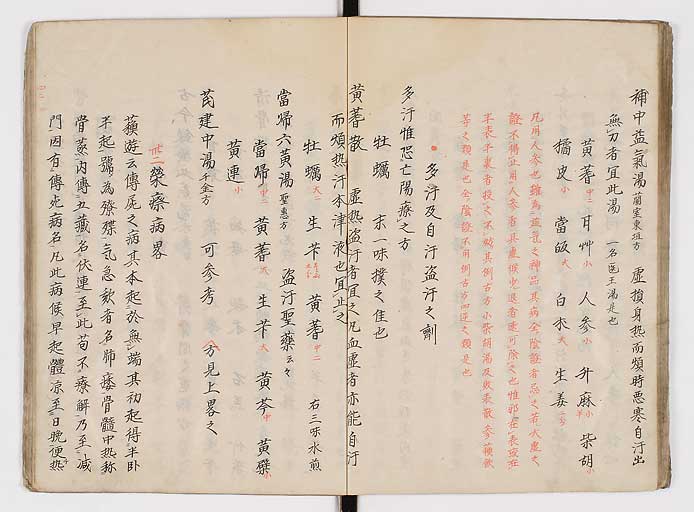 補中益氣湯 蘭室東垣方 虛損身热而煩時悪寒自汗出
無力者宜此湯 一名医王湯是也
黄蓍 中二 甘艸 小 人参 小 升麻 小半 柴胡 小
橘皮 小 當皈 大 白朮 大 生姜
凡用人参也雖為之神品其病全陰證者忌之若大虛之
證不得止用人参者其虛候少退者速可除之也惟邪在表或在
半表半裏者投之不妨其例古方小柴胡湯及敗毒散参
等之類是也全陰證不用例古方四逆之類是也
多汗及自汗盗汗之劑
多汗惟恐亡陽療之方
牡蠣 末一味撲之佳也
黄蓍散 虛热盗汗者宜之凡血虛者亦能自汗
而煩热汗本津液也宜止之
牡蠣 大二 生芐 黄蓍 中二 右三味水煎
當帰六黄湯 聖惠方 盗汗聖藥云々
當帰 中二 黄蓍 大 生芐 大 黄芩 中 黄蘗 小
黄連 小
芪建中湯 千金方 可参考 方見上畧之
卅二 癆瘵病畧
蘓遊云傳屍之病其本起於無端其初起得半卧
半起號為殗殜氣急欬者名肺痿骨髓中热称
骨蒸内傳五藏名伏連至此苟不療解乃至滅
門因有傳屍病名凡此病候早起體凉至日晩便热